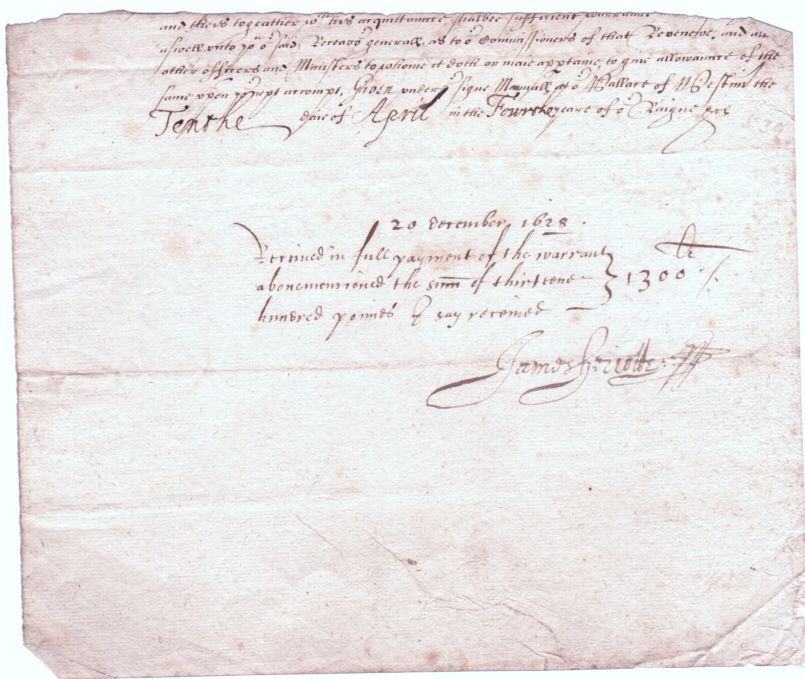 and theis togeather wth his acquittance shalbee sufficient warrant
aswell unto yor said Receavor generall, as to or Commissioners of that Revenewe, and all
other officers and Ministers to whome it doth or maie apptaine, to give allowance of the
same upon yor accompt, Given under or signe Manuall at or Pallace of Westmr the
Tenthe daie of April in the Fourthe yeare of or Raigne
20 december 1628.
Received in full payment of the warrant
abovementioned the sum of thirteene
hundred poundes I say received
li
1300
James Heriott